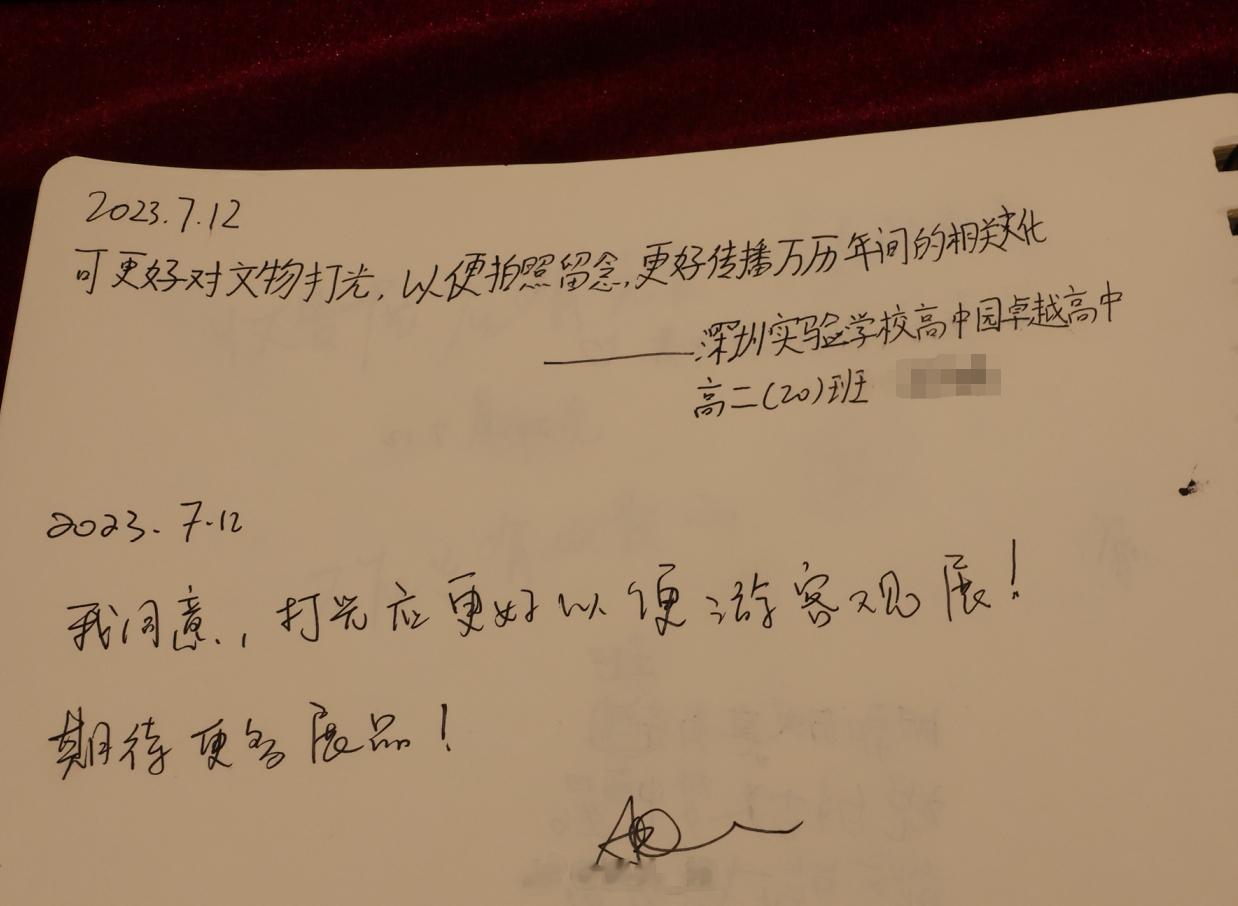 2023.7.12
可更好对文物打光,以便拍照留念,更好传播万历年间的相关文化
——深圳实验学校高中园卓越高中
高二(20)班
2023.7.12
我同意,打光应更好以便游客观展!
期待更多展品!